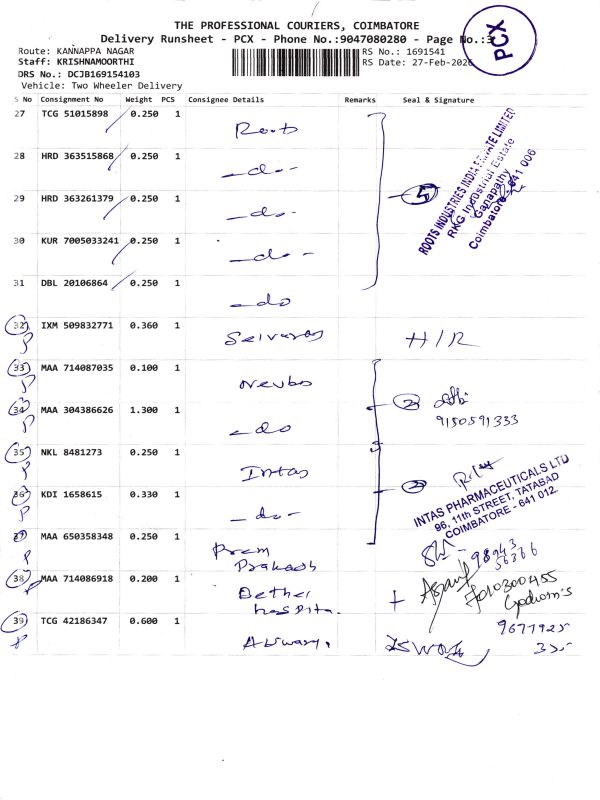 THE PROFESSIONAL COURIERS, COIMBATORE
Delivery Runsheet - PCX - Phone No.:9047080280 - Page No.:3
PCX
Route: KANNAPPA NAGAR
RS No.: 1691541
Staff: KRISHNAMOORTHI
RS Date: 27-Feb-2026
DRS No.: DCJB169154103
Vehicle: Two Wheeler Delivery
S No Consignment No Weight PCS Consignee Details Remarks Seal & Signature
27 TCG 51015898 0.250 1 Roots
28 HRD 363515868 0.250 1 -do-
29 HRD 363261379 0.250 1 -do-
30 KUR 7005033241 0.250 1 -do-
31 DBL 20106864 0.250 1 -do
5
ROOTS INDUSTRIES INDIA PRIVATE LIMITED
RKG Industrial Estate
Ganapathy
Coimbatore - 641 006
32 IXM 509832771 0.360 1 Selvaraj H/R
P
33 MAA 714087035 0.100 1
P
34 MAA 304386626 1.300 1 -do
P
2
9150591333
35 NKL 8481273 0.250 1 Intas
P
36 KDI 1658615 0.330 1 -do-
P
2
INTAS PHARMACEUTICALS LTD
96, 11th STREET, TATABAD
COIMBATORE - 641 012.
37 MAA 650358348 0.250 1 Prem
Prakash
P
98943
56366
38 MAA 714086918 0.200 1 Bethel
hospital.
39 TCG 42186347 0.600 1
P
9677925